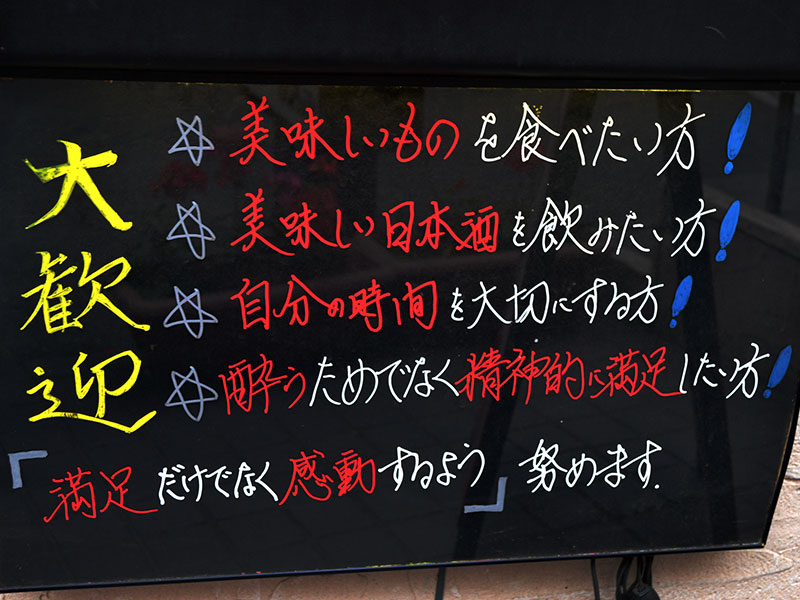 大歓迎
☆美味しいものを食べたい方!
☆美味しい日本酒を飲みたい方!
☆自分の時間を大切にする方!
☆酔うためでなく精神的に満足したい方!
「満足だけでなく感動するよう」努めます.